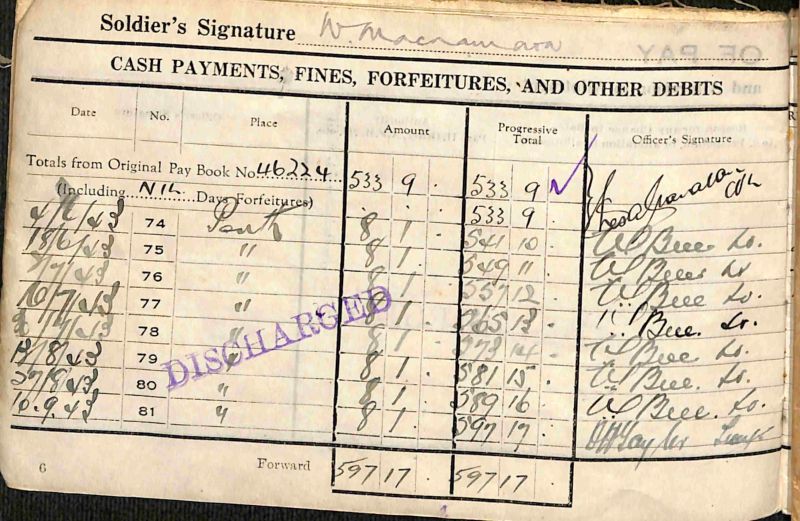 Soldier's Signature W. Macnamara
CASH PAYMENTS, FINES, FORFEITURES, AND OTHER DEBITS
Date No. Place Amount Progressive Total Officer's Signature
Totals from Original Pay Book No. 46224 533 9 . 533 9
(Including NIL Days Forfeitures) . . 533 9
4/6/43 74 Perth 8 1 . 541 10 .
18/6/43 75 " 8 1 . 549 11 .
2/7/43 76 " 8 1 . 557 12 .
16/7/43 77 " 8 1 . 565 13 .
78 " 8 1 . 573 14 .
13/8/43 79 " 8 1 . 581 15 .
27/8/43 80 " 8 1 . 589 16 .
10.9.43 81 " 8 1 . 597 17 .
DISCHARGED
6 Forward 597 17 . 597 17 .